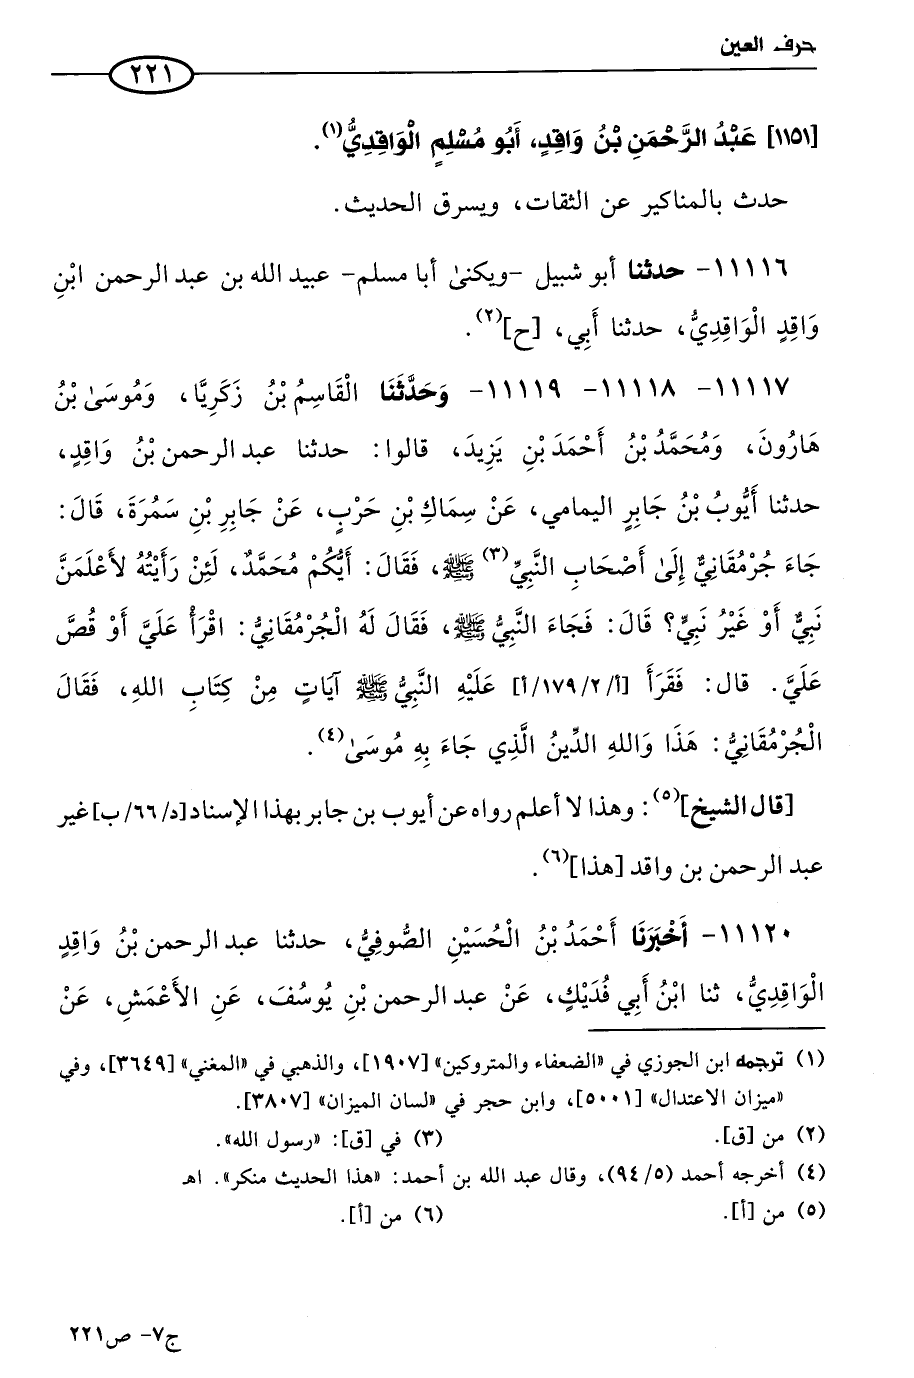 حرف العين
٢٢١
[١١٥١] عَبْدُ الرَّحْمَنِ بْنُ وَاقِدٍ، أَبُو مُسْلِمٍ الْوَاقِدِيُّ(١).
حدث بالمناكير عن الثقات، ويسرق الحديث.
١١١١٦- حدثنا أبو شبيل -ويكنىٰ أبا مسلم- عبيد الله بن عبد الرحمن ابْنِ
وَاقِدٍ الْوَاقِدِيُّ، حدثنا أَبِي، [ح](٢).
١١١١٧- ١١١١٨- ١١١١٩- وَحَدَّثَنَا الْقَاسِمُ بْنُ زَكَرِيَّا، وَمُوسَىٰ بْنُ
هَارُونَ، وَمُحَمَّدُ بْنُ أَحْمَدَ بْنِ يَزِيدَ، قالوا: حدثنا عبد الرحمن بْنُ وَاقِدٍ،
حدثنا أَيُّوبُ بْنُ جَابِرٍ اليمامي، عَنْ سِمَاكِ بْنِ حَرْبٍ، عَنْ جَابِرِ بْنِ سَمُرَةَ، قَالَ:
جَاءَ جُرْمُقَانِيٌّ إِلَىٰ أَصْحَابِ النَّبِيِّ(٣) ﷺ، فَقَالَ: أَيُّكُمْ مُحَمَّدٌ، لَئِنْ رَأَيْتُهُ لأَعْلَمَنَّ
نَبِيٌّ أَوْ غَيْرُ نَبِيٍّ؟ قَالَ: فَجَاءَ النَّبِيُّ ﷺ، فَقَالَ لَهُ الْجُرْمُقَانِيُّ: اقْرَأْ عَلَيَّ أَوْ قُصَّ
عَلَيَّ. قال: فَقَرَأَ [أ/٢/١٧٩/أ] عَلَيْهِ النَّبِيُّ ﷺ آيَاتٍ مِنْ كِتَابِ اللهِ، فَقَالَ
الْجُرْمُقَانِيُّ: هَذَا وَاللهِ الدِّينُ الَّذِي جَاءَ بِهِ مُوسَىٰ(٤).
[قال الشيخ](٥): وهذا لا أعلم رواه عن أيوب بن جابر بهذا الإسناد[د/٦٦/ب] غير
عبد الرحمن بن واقد [هذا](٦).
١١١٢٠- أَخْبَرَنَا أَحْمَدُ بْنُ الْحُسَيْنِ الصُّوفِيُّ، حدثنا عبد الرحمن بْنُ وَاقِدٍ
الْوَاقِدِيُّ، ثنا ابْنُ أَبِي فُدَيْكٍ، عَنْ عبد الرحمن بْنِ يُوسُفَ، عَنِ الأَعْمَشِ، عَنْ
(١) ترجمه ابن الجوزي في «الضعفاء والمتروكين» [١٩٠٧]، والذهبي في «المغني» [٣٦٤٩]، وفي
«ميزان الاعتدال» [٥٠٠١]، وابن حجر في «لسان الميزان» [٣٨٠٧].
(٢) من [ق]. (٣) في [ق]: «رسول الله».
(٤) أخرجه أحمد (٩٤/٥)، وقال عبد الله بن أحمد: «هذا الحديث منكر». اهـ
(٥) من [أ]. (٦) من [أ].
ج٧- ص٢٢١